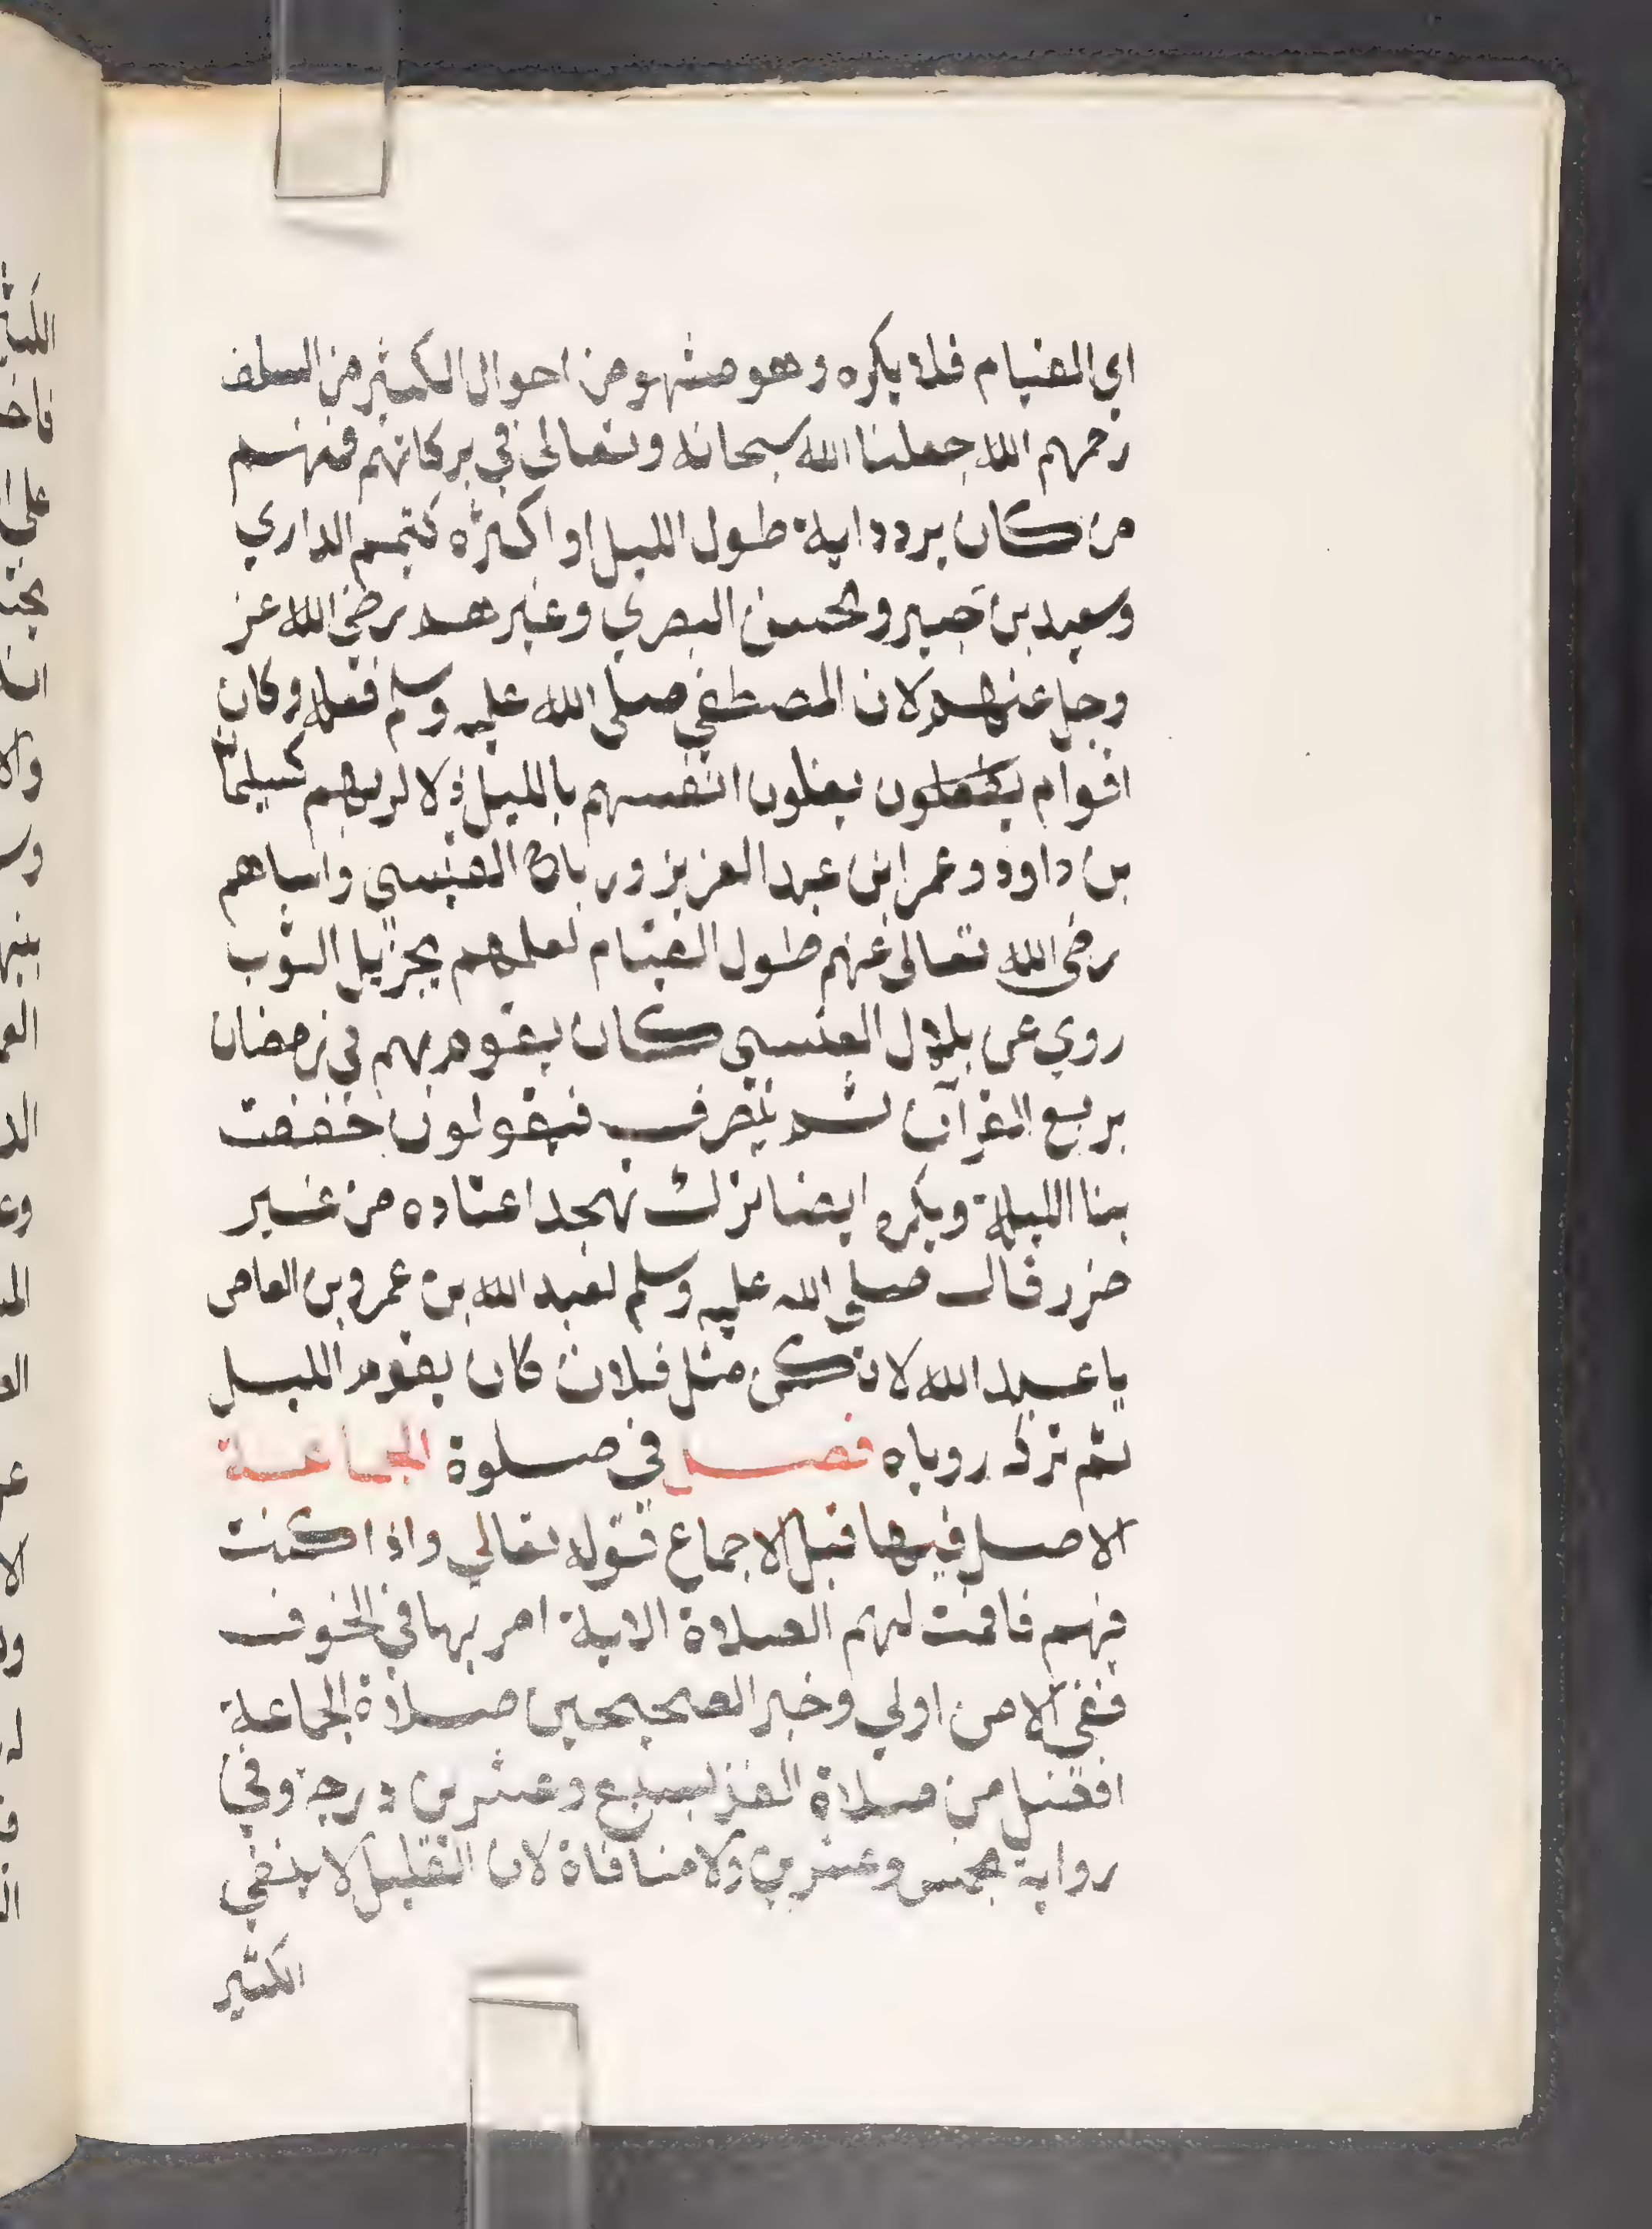 اي القيام فلا يكره وهو مشهو من احوال الكثير من السلف
رحمهم الله جعلنا الله سبحانه وتعالى في بركاتهم فمنهم
من كان يردد اية طول الليل او اكثره كتميم الداري
وسعيد بن جبير والحسن البصري وغيرهم رضي الله عز
وجل عنهم لان المصطفي صلى الله عليه وسلم فعله وكان
اقوام يفعلون يغلون انفسهم بالليل ذلا لربهم كسليمان
بن داوود وعمر ابن عبد العزيز ورباح القيسي واشباهم
رضي الله تعالى عنهم طول القيام لعلمهم بجزيل الثوب
روي عن بلال العنسي كان يقوم بهم في رمضان
بربع القرآن ثم ينصرف فيقولون خففت
بنا الليلة ويكره ايضا ترك تهجد اعتاده من غير
ضرر قال صلى الله عليه وسلم لعبد الله بن عمرو بن العاص
يا عبد الله لا تكن مثل فلان كان يقوم الليل
ثم تركه روياه فصل في صلوة الجماعة
الاصل فيها قبل الاجماع قوله تعالي واذا كنت
فيهم فاقمت لهم الصلاة الاية امر بها في الخوف
ففي الامن اولي وخبر الصحيحين صلاة الجماعة
افضل من صلاة الفذ بسبع وعشرين درجة وفي
رواية بخمس وعشرين ولا منافاة لان القليل لا ينفي
الكثير